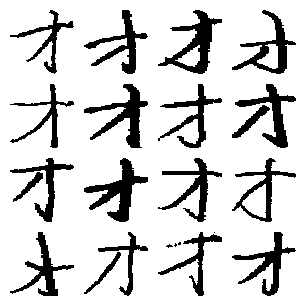 才才才才
才才才才
才才才才
才才才才